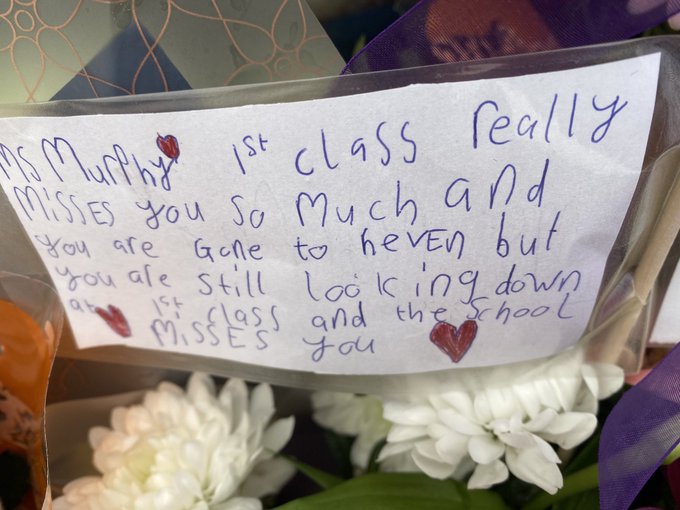 Ms Murphy 1st class really
MISSES you so Much and
you are Gone to heven but
you are still looking down
at 1st class and the School
MISSES you